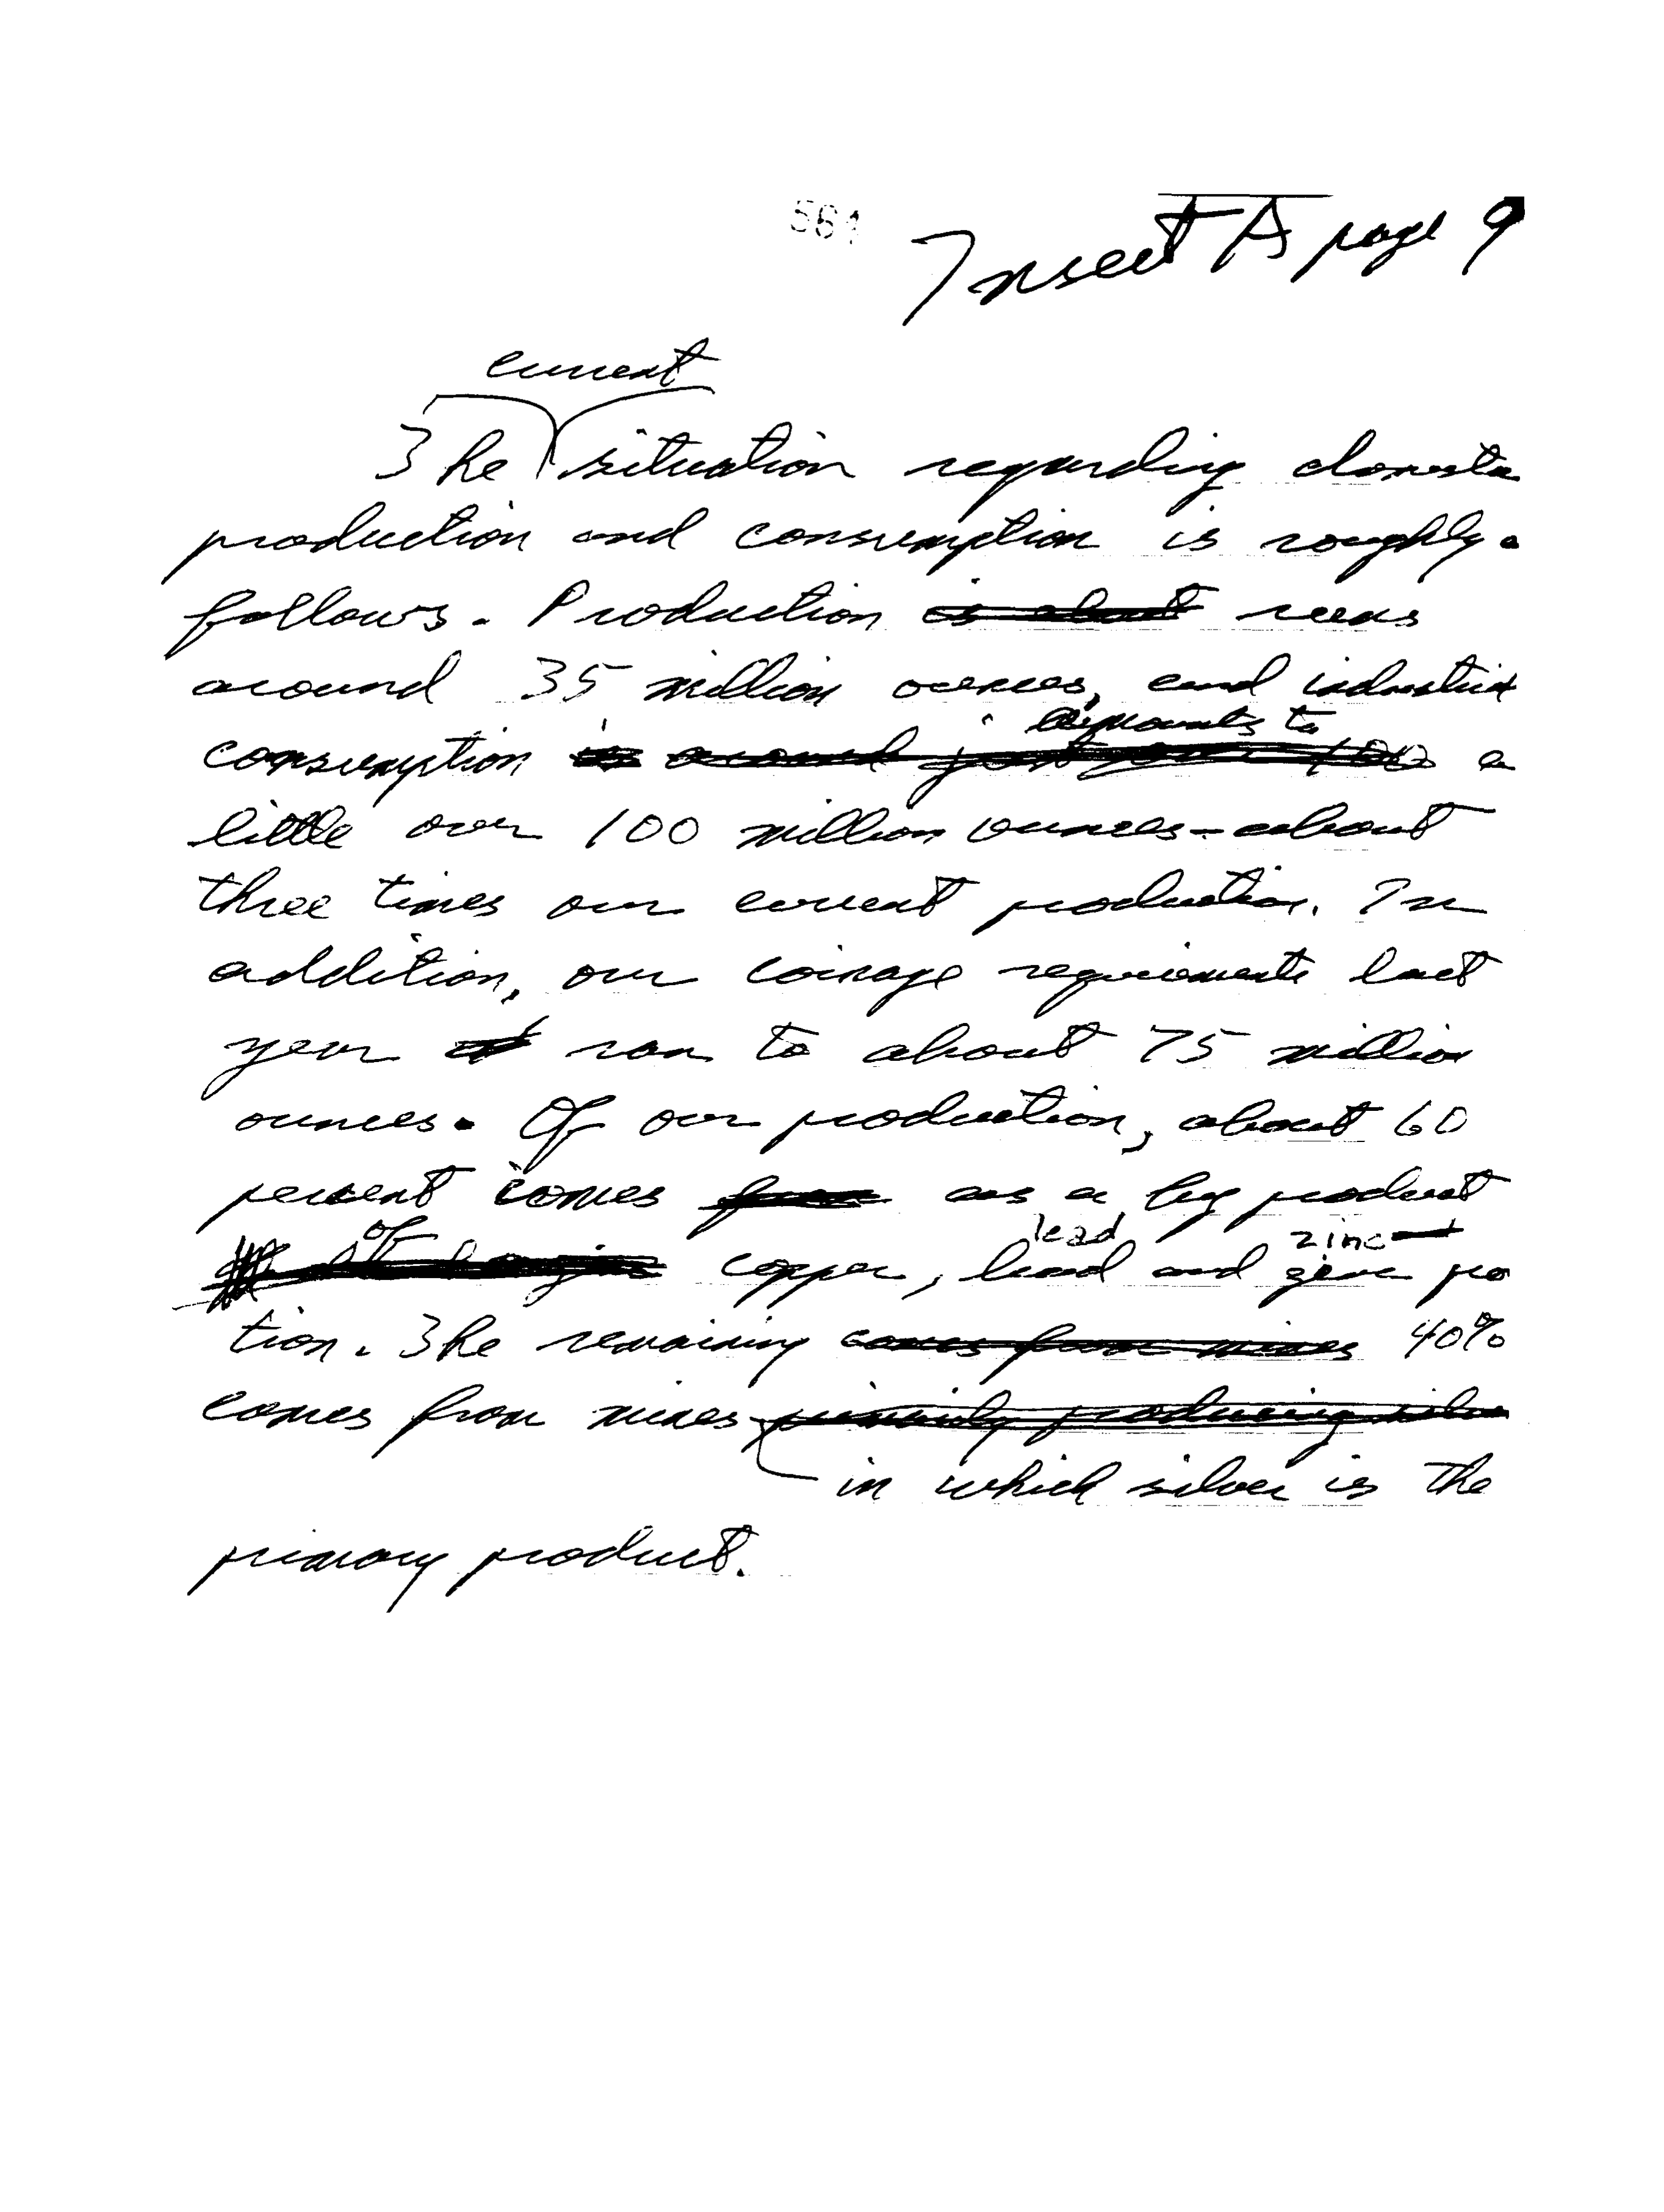 561
Insert A page 9
current
The situation regarding domestic
production and consumption is roughly
follows. Production is about runs
around 35 million ounces, and industrial
amounts to
consumption is around just over 100 a
little over 100 million ounces - about
three times our current production. In
addition, our coinage requirements last
year ran to about 75 million
ounces. Of our production, about 60
percent comes from as a by product
of lead zinc
copper, lead and zinc pro
tion. The remaining comes from mines 40%
comes from mines primarily producing silver
in which silver is the
primary product.